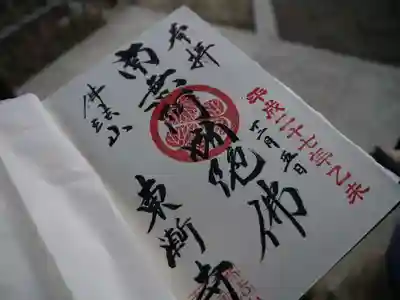 奉拝
平成二十七年乙未
十二月五日
南無阿弥陀佛
佛法山
東漸寺